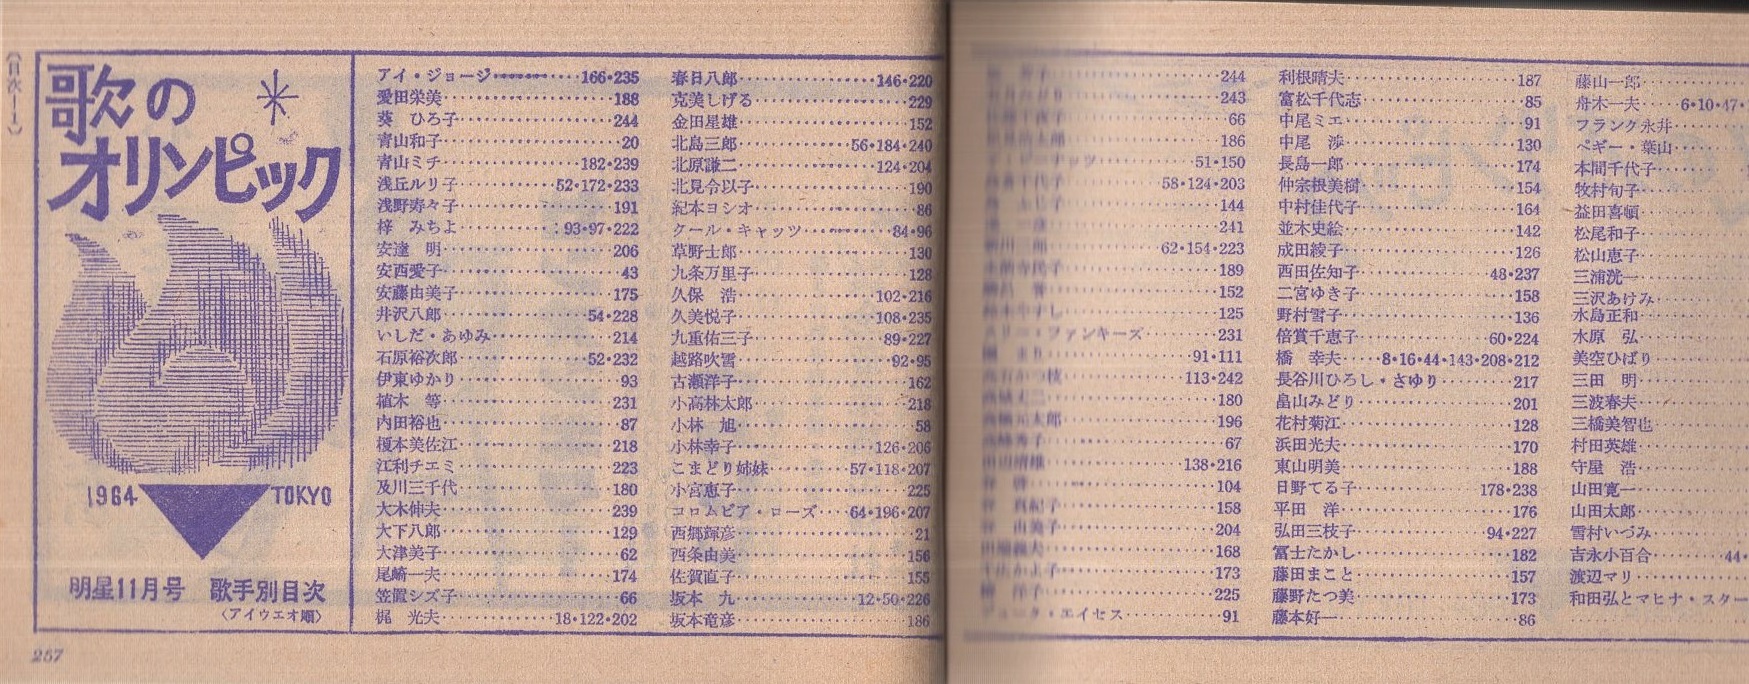 〈目次―1〉
歌の
オリンピック
1964 TOKYO
明星11月号 歌手別目次
〈アイウエオ順〉
257
アイ・ジョージ 166・235
愛田栄美 188
葵 ひろ子 244
青山和子 20
青山ミチ 182・239
浅丘ルリ子 52・172・233
浅野寿々子 191
梓 みちよ 93・97・222
安達 明 206
安西愛子 43
安藤由美子 175
井沢八郎 54・228
いしだ・あゆみ 214
石原裕次郎 52・232
伊東ゆかり 93
植木 等 231
内田裕也 87
榎本美佐江 218
江利チエミ 223
及川三千代 180
大木伸夫 239
大下八郎 129
大津美子 62
尾崎一夫 174
笠置シズ子 66
梶 光夫 18・122・202
春日八郎 146・220
克美しげる 229
金田星雄 152
北島三郎 56・184・240
北原謙二 124・204
北見令以子 190
紀本ヨシオ 86
クール・キャッツ 84・96
草野士郎 130
九条万里子 128
久保 浩 102・216
久美悦子 108・235
九重佑三子 89・227
越路吹雪 92・95
古瀬洋子 162
小高林太郎 218
小林 旭 58
小林幸子 126・206
こまどり姉妹 57・118・207
小宮恵子 225
コロムビア・ローズ 64・196・207
西郷輝彦 21
西条由美 156
佐賀直子 155
坂本 九 12・50・226
坂本竜彦 186
244
243
66
186
ナッツ 51・150
千代子 58・124・203
144
241
62・154・223
189
152
125
スリー・ファンキーズ 231
まり 91・111
113・242
180
196
67
138・216
104
真紀子 158
由美子 204
168
173
洋子 225
デューク・エイセス 91
利根晴夫 187
富松千代志 85
中尾ミエ 91
中尾 渉 130
長島一郎 174
仲宗根美樹 154
中村佳代子 164
並木史絵 142
成田綾子 126
西田佐知子 48・237
二宮ゆき子 158
野村雪子 136
倍賞千恵子 60・224
橋 幸夫 8・16・44・143・208・212
長谷川ひろし・さゆり 217
畠山みどり 201
花村菊江 128
浜田光夫 170
東山明美 188
日野てる子 178・238
平田 洋 176
弘田三枝子 94・227
冨士たかし 182
藤田まこと 157
藤野たつ美 173
藤本好一 86
藤山一郎
舟木一夫 6・10・47・
フランク永井
ペギー・葉山
本間千代子
牧村旬子
益田喜頓
松尾和子
松山恵子
三浦洸一
三沢あけみ
水島正和
水原 弘
美空ひばり
三田 明
三波春夫
三橋美智也
村田英雄
守屋 浩
山田寛一
山田太郎
雪村いづみ
吉永小百合 44・
渡辺マリ
和田弘とマヒナ・スター